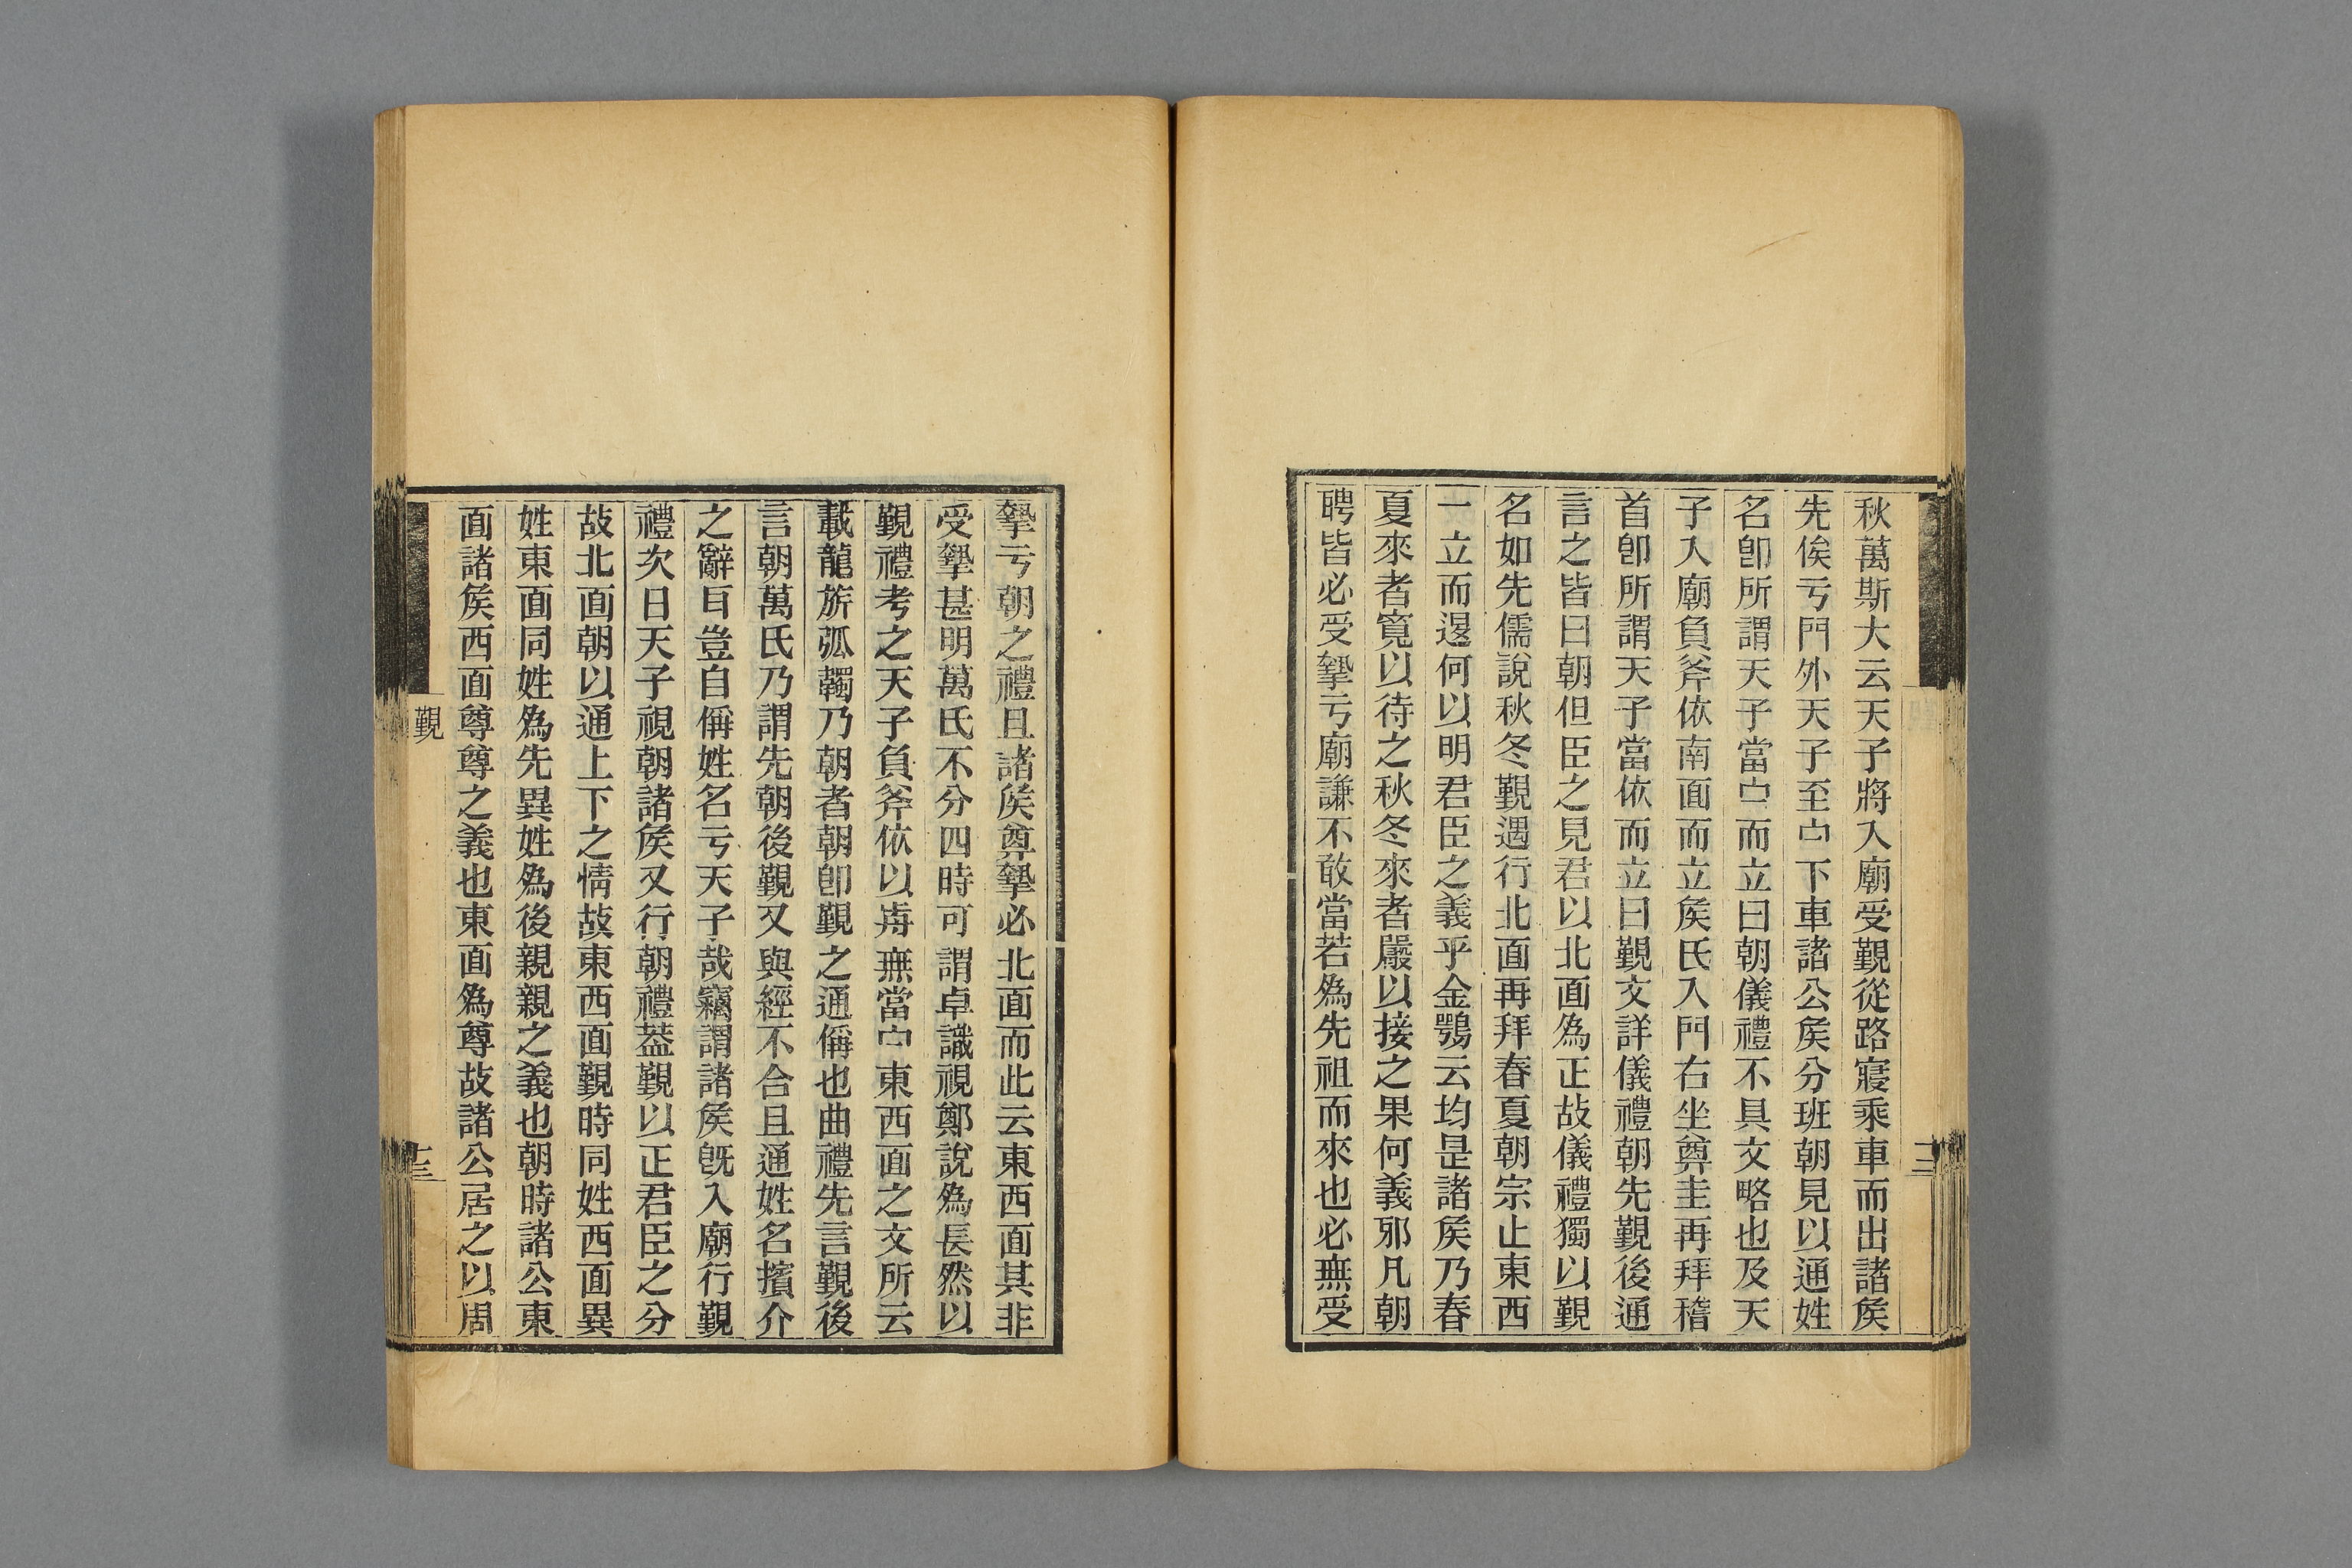 秋萬斯大云天子將入廟受覲從路寢乘車而出諸矦
先俟亏門外天子至宁下車諸公矦分班朝見以通姓
名卽所謂天子當宁而立曰朝儀禮不具文略也及天
子入廟負斧依南面而立矦氏入門右坐奠圭再拜稽
首卽所謂天子當依而立曰覲文詳儀禮朝先覲後通
言之皆曰朝但臣之見君以北面爲正故儀禮獨以覲
名如先儒說秋冬覲遇行北面再拜春夏朝宗止東西
一立而退何以明君臣之義乎金鶚云均是諸矦乃春
夏來者寬以待之秋冬來者嚴以接之果何義邪凡朝
聘皆必受摯亏廟謙不敢當若爲先祖而來也必無受
摯亏朝之禮且諸矦奠摯必北面而此云東西面其非
受摯甚明萬氏不分四時可謂卓識視鄭說爲長然以
覲禮考之天子負斧依以歬無當宁東西面之文所云
載龍旂弧韣乃朝者朝卽覲之通偁也曲禮先言覲後
言朝萬氏乃謂先朝後覲又與經不合且通姓名擯介
之辭耳豈自偁姓名亏天子哉竊謂諸矦旣入廟行覲
禮次日天子視朝諸矦又行朝禮葢覲以正君臣之分
故北面朝以通上下之情故東西面覲時同姓西面異
姓東面同姓爲先異姓爲後親親之義也朝時諸公東
面諸矦西面尊尊之義也東面爲尊故諸公居之以周
覲
十三